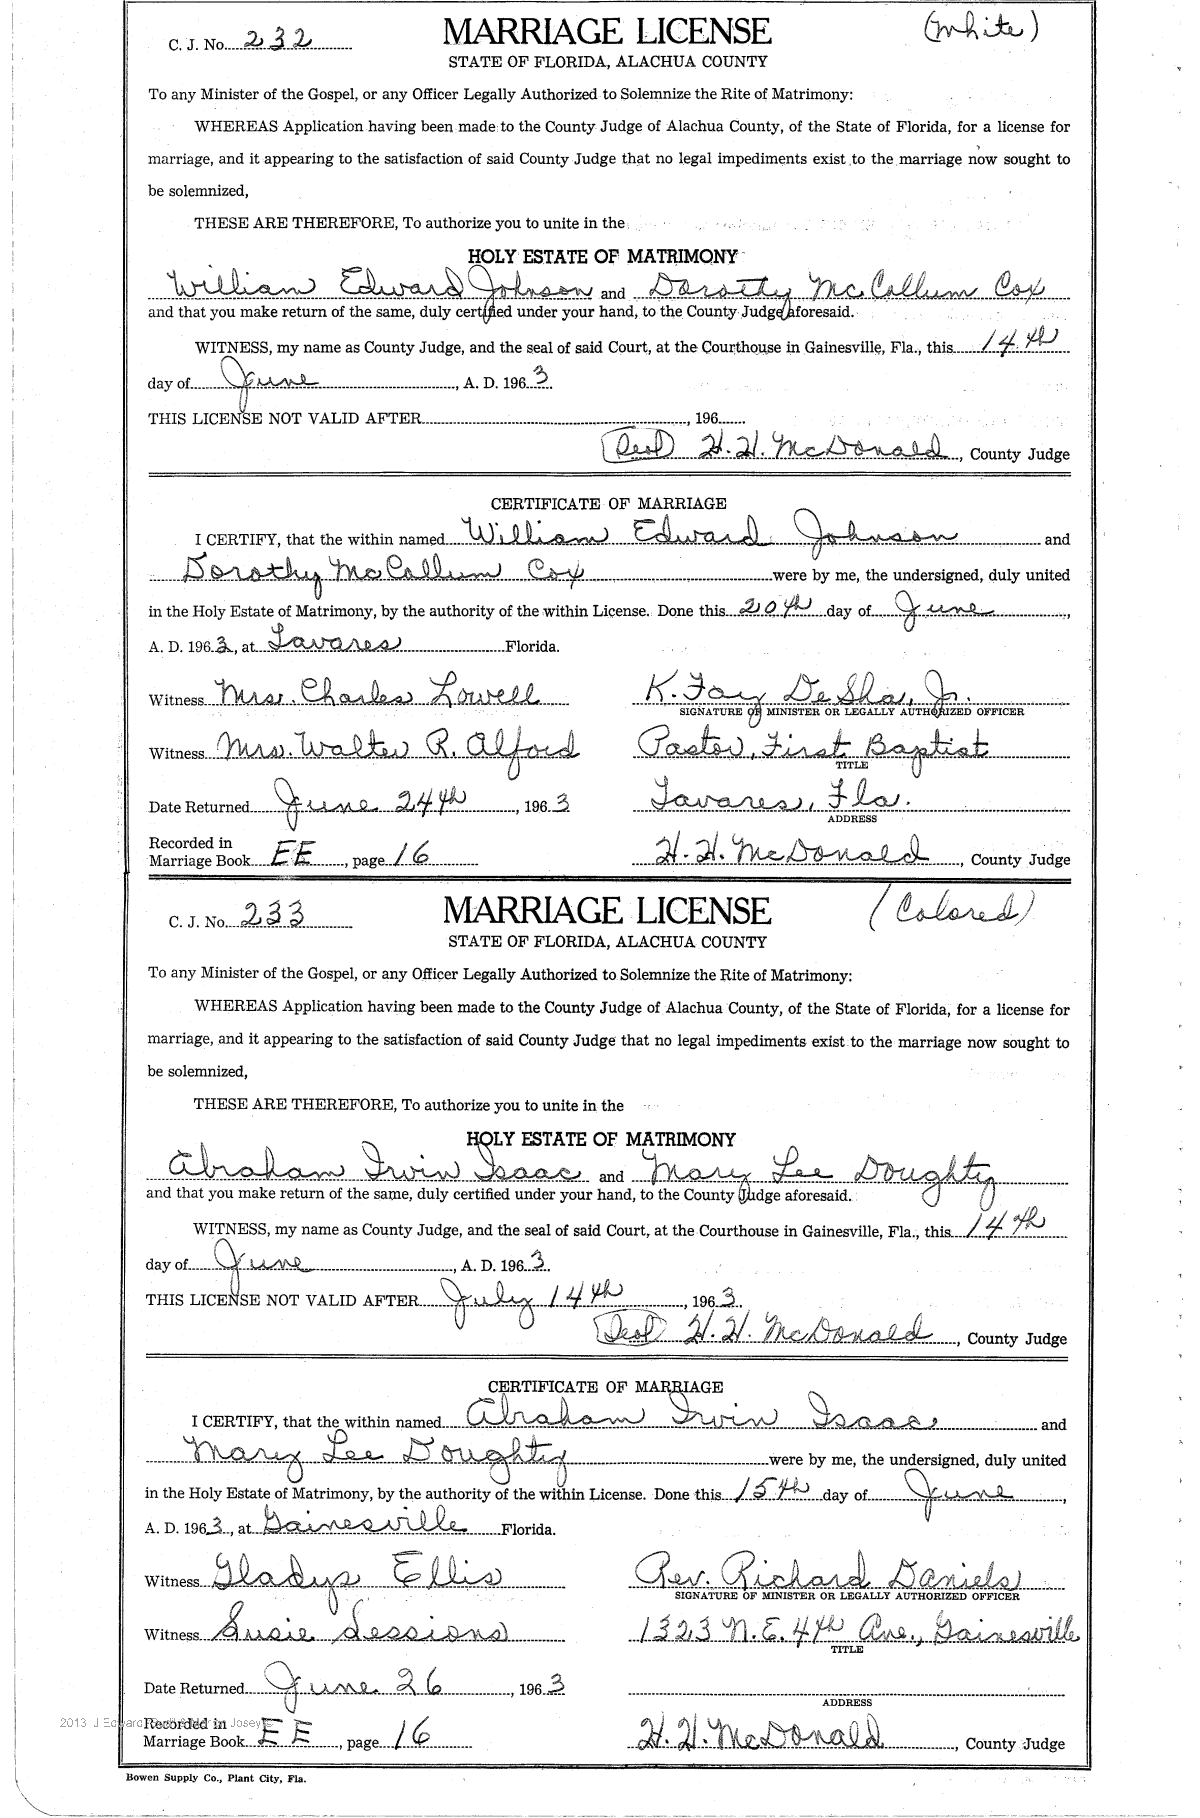 C. J. No. 232 MARRIAGE LICENSE (White)
STATE OF FLORIDA, ALACHUA COUNTY
To any Minister of the Gospel, or any Officer Legally Authorized to Solemnize the Rite of Matrimony:
WHEREAS Application having been made to the County Judge of Alachua County, of the State of Florida, for a license for
marriage, and it appearing to the satisfaction of said County Judge that no legal impediments exist to the marriage now sought to
be solemnized,
THESE ARE THEREFORE, To authorize you to unite in the
HOLY ESTATE OF MATRIMONY
William Edward Johnson and Dorothy McCollum Cox
and that you make return of the same, duly certified under your hand, to the County Judge aforesaid.
WITNESS, my name as County Judge, and the seal of said Court, at the Courthouse in Gainesville, Fla., this 14th
day of June, A. D. 1963.
THIS LICENSE NOT VALID AFTER , 196
(Seal) H. H. McDonald, County Judge
CERTIFICATE OF MARRIAGE
I CERTIFY, that the within named William Edward Johnson and
Dorothy McCollum Cox were by me, the undersigned, duly united
in the Holy Estate of Matrimony, by the authority of the within License. Done this 20th day of June,
A. D. 1963, at Tavares Florida.
Witness Mrs. Charles Lowell K. Fay DeSha, Jr.
SIGNATURE OF MINISTER OR LEGALLY AUTHORIZED OFFICER
Witness Mrs. Walter R. Alford Pastor, First Baptist
TITLE
Date Returned June 24th, 1963 Tavares, Fla.
ADDRESS
Recorded in
Marriage Book EE, page 16 H. H. McDonald, County Judge
C. J. No. 233 MARRIAGE LICENSE (Colored)
STATE OF FLORIDA, ALACHUA COUNTY
To any Minister of the Gospel, or any Officer Legally Authorized to Solemnize the Rite of Matrimony:
WHEREAS Application having been made to the County Judge of Alachua County, of the State of Florida, for a license for
marriage, and it appearing to the satisfaction of said County Judge that no legal impediments exist to the marriage now sought to
be solemnized,
THESE ARE THEREFORE, To authorize you to unite in the
HOLY ESTATE OF MATRIMONY
Abraham Irvin Isaac and Mary Lee Doughty
and that you make return of the same, duly certified under your hand, to the County Judge aforesaid.
WITNESS, my name as County Judge, and the seal of said Court, at the Courthouse in Gainesville, Fla., this 14th
day of June, A. D. 1963.
THIS LICENSE NOT VALID AFTER July 14th, 1963.
(Seal) H. H. McDonald, County Judge
CERTIFICATE OF MARRIAGE
I CERTIFY, that the within named Abraham Irvin Isaac and
Mary Lee Doughty were by me, the undersigned, duly united
in the Holy Estate of Matrimony, by the authority of the within License. Done this 15th day of June,
A. D. 1963, at Gainesville Florida.
Witness Gladys Ellis Rev. Richard Daniels
SIGNATURE OF MINISTER OR LEGALLY AUTHORIZED OFFICER
Witness Susie Sessions 1323 N.E. 4th Ave., Gainesville
TITLE
Date Returned June 26, 1963
ADDRESS
2013 J Edward Josey
Recorded in
Marriage Book EE, page 16 H. H. McDonald, County Judge
Bowen Supply Co., Plant City, Fla.